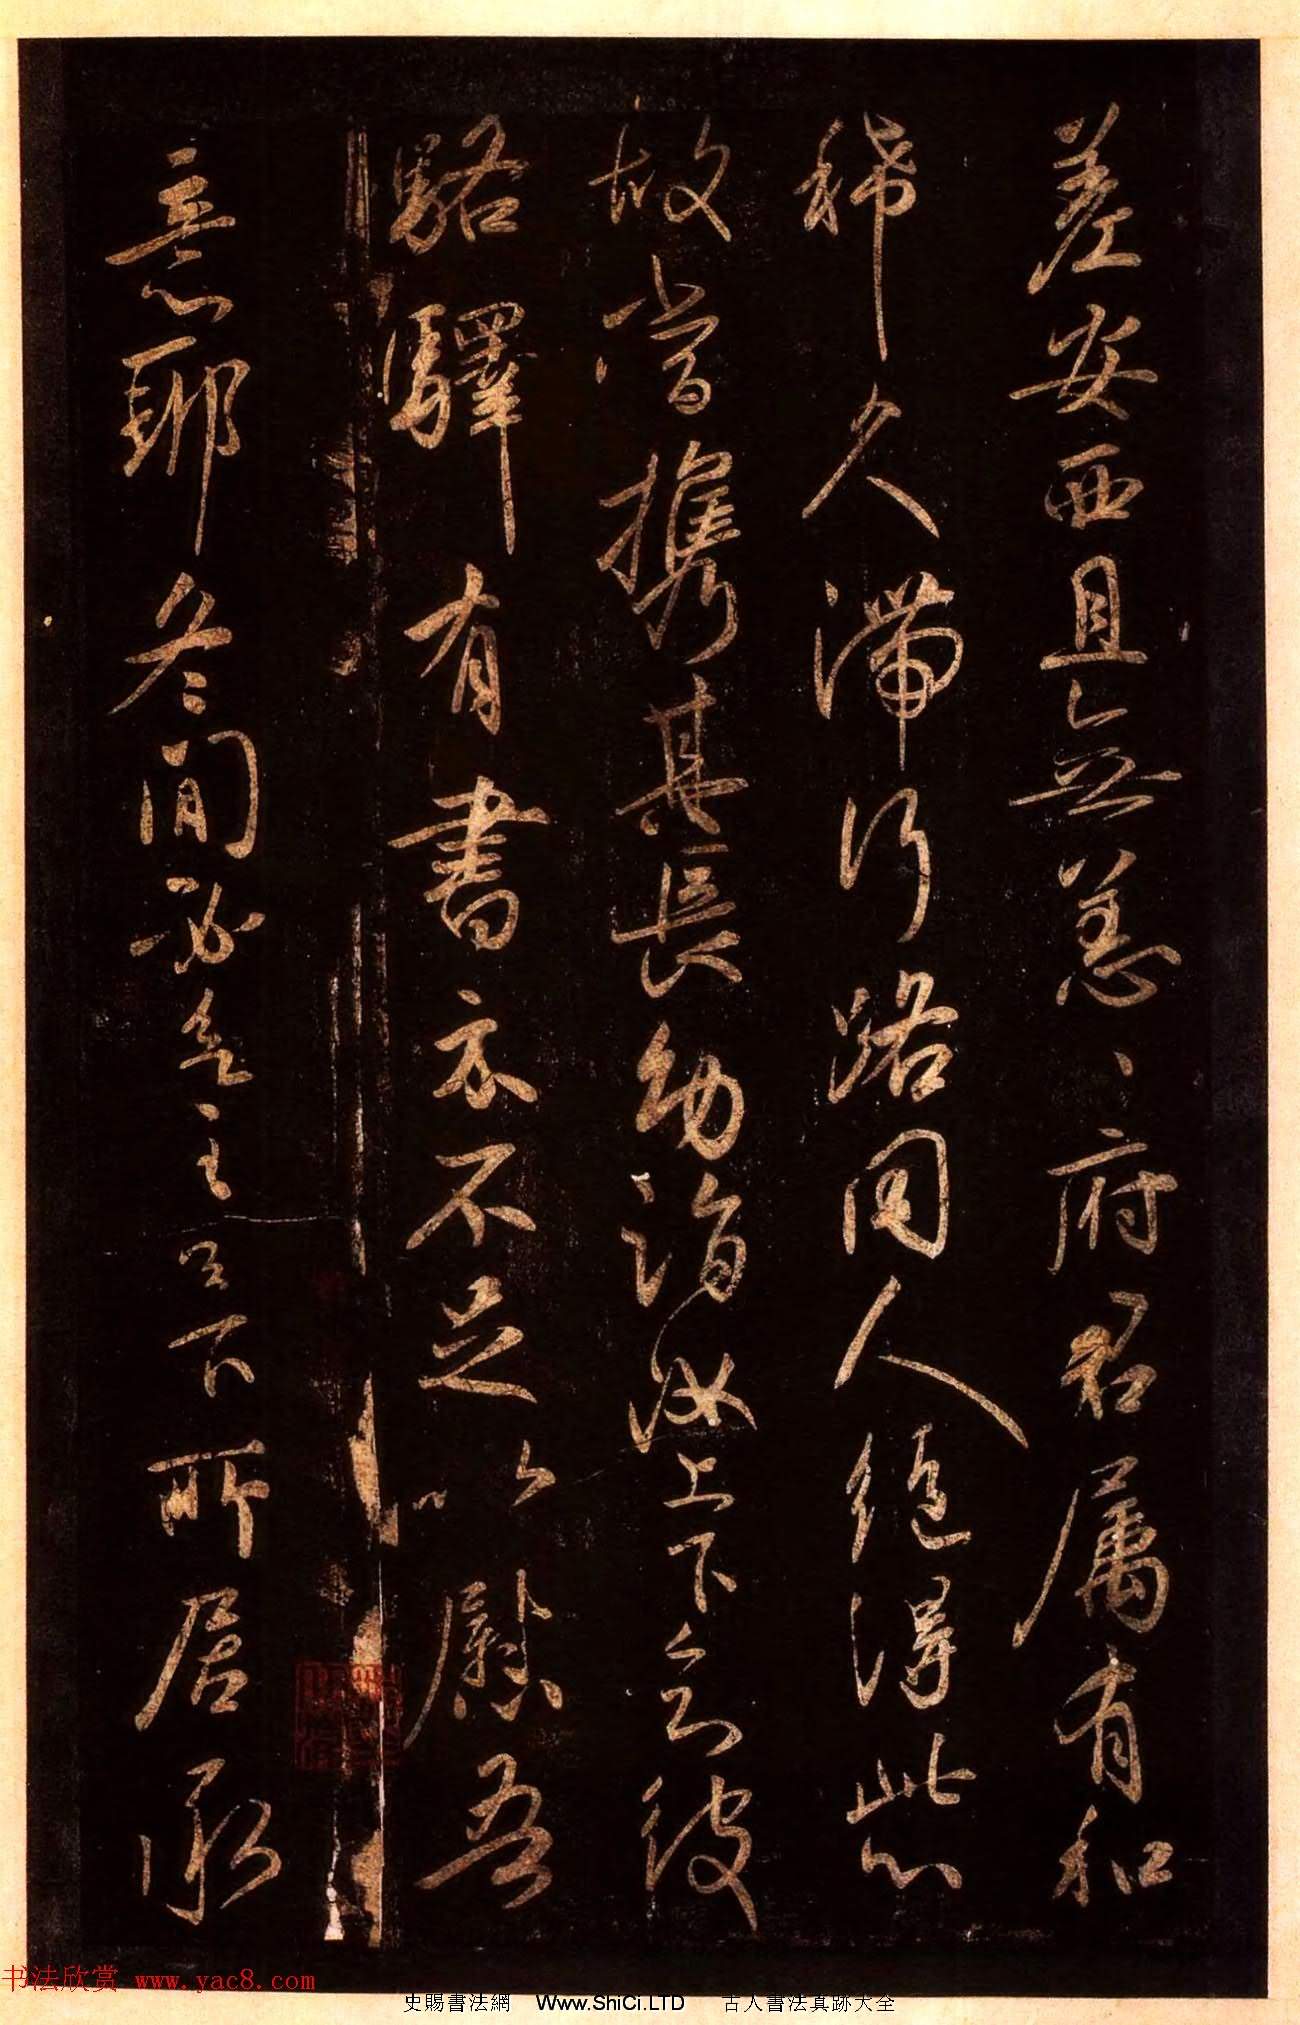 差安西且無恙〻府君属有和
稀久滯行路同人絕得此心
故当攜其長幼詣汝上下亦彼
駱驛有書亦不足以慰吾
意耶冬間必
下所居承
书法欣赏 www.yac8.com
史賜書法網 Www.ShiCi.LTD 古人書法真跡大全